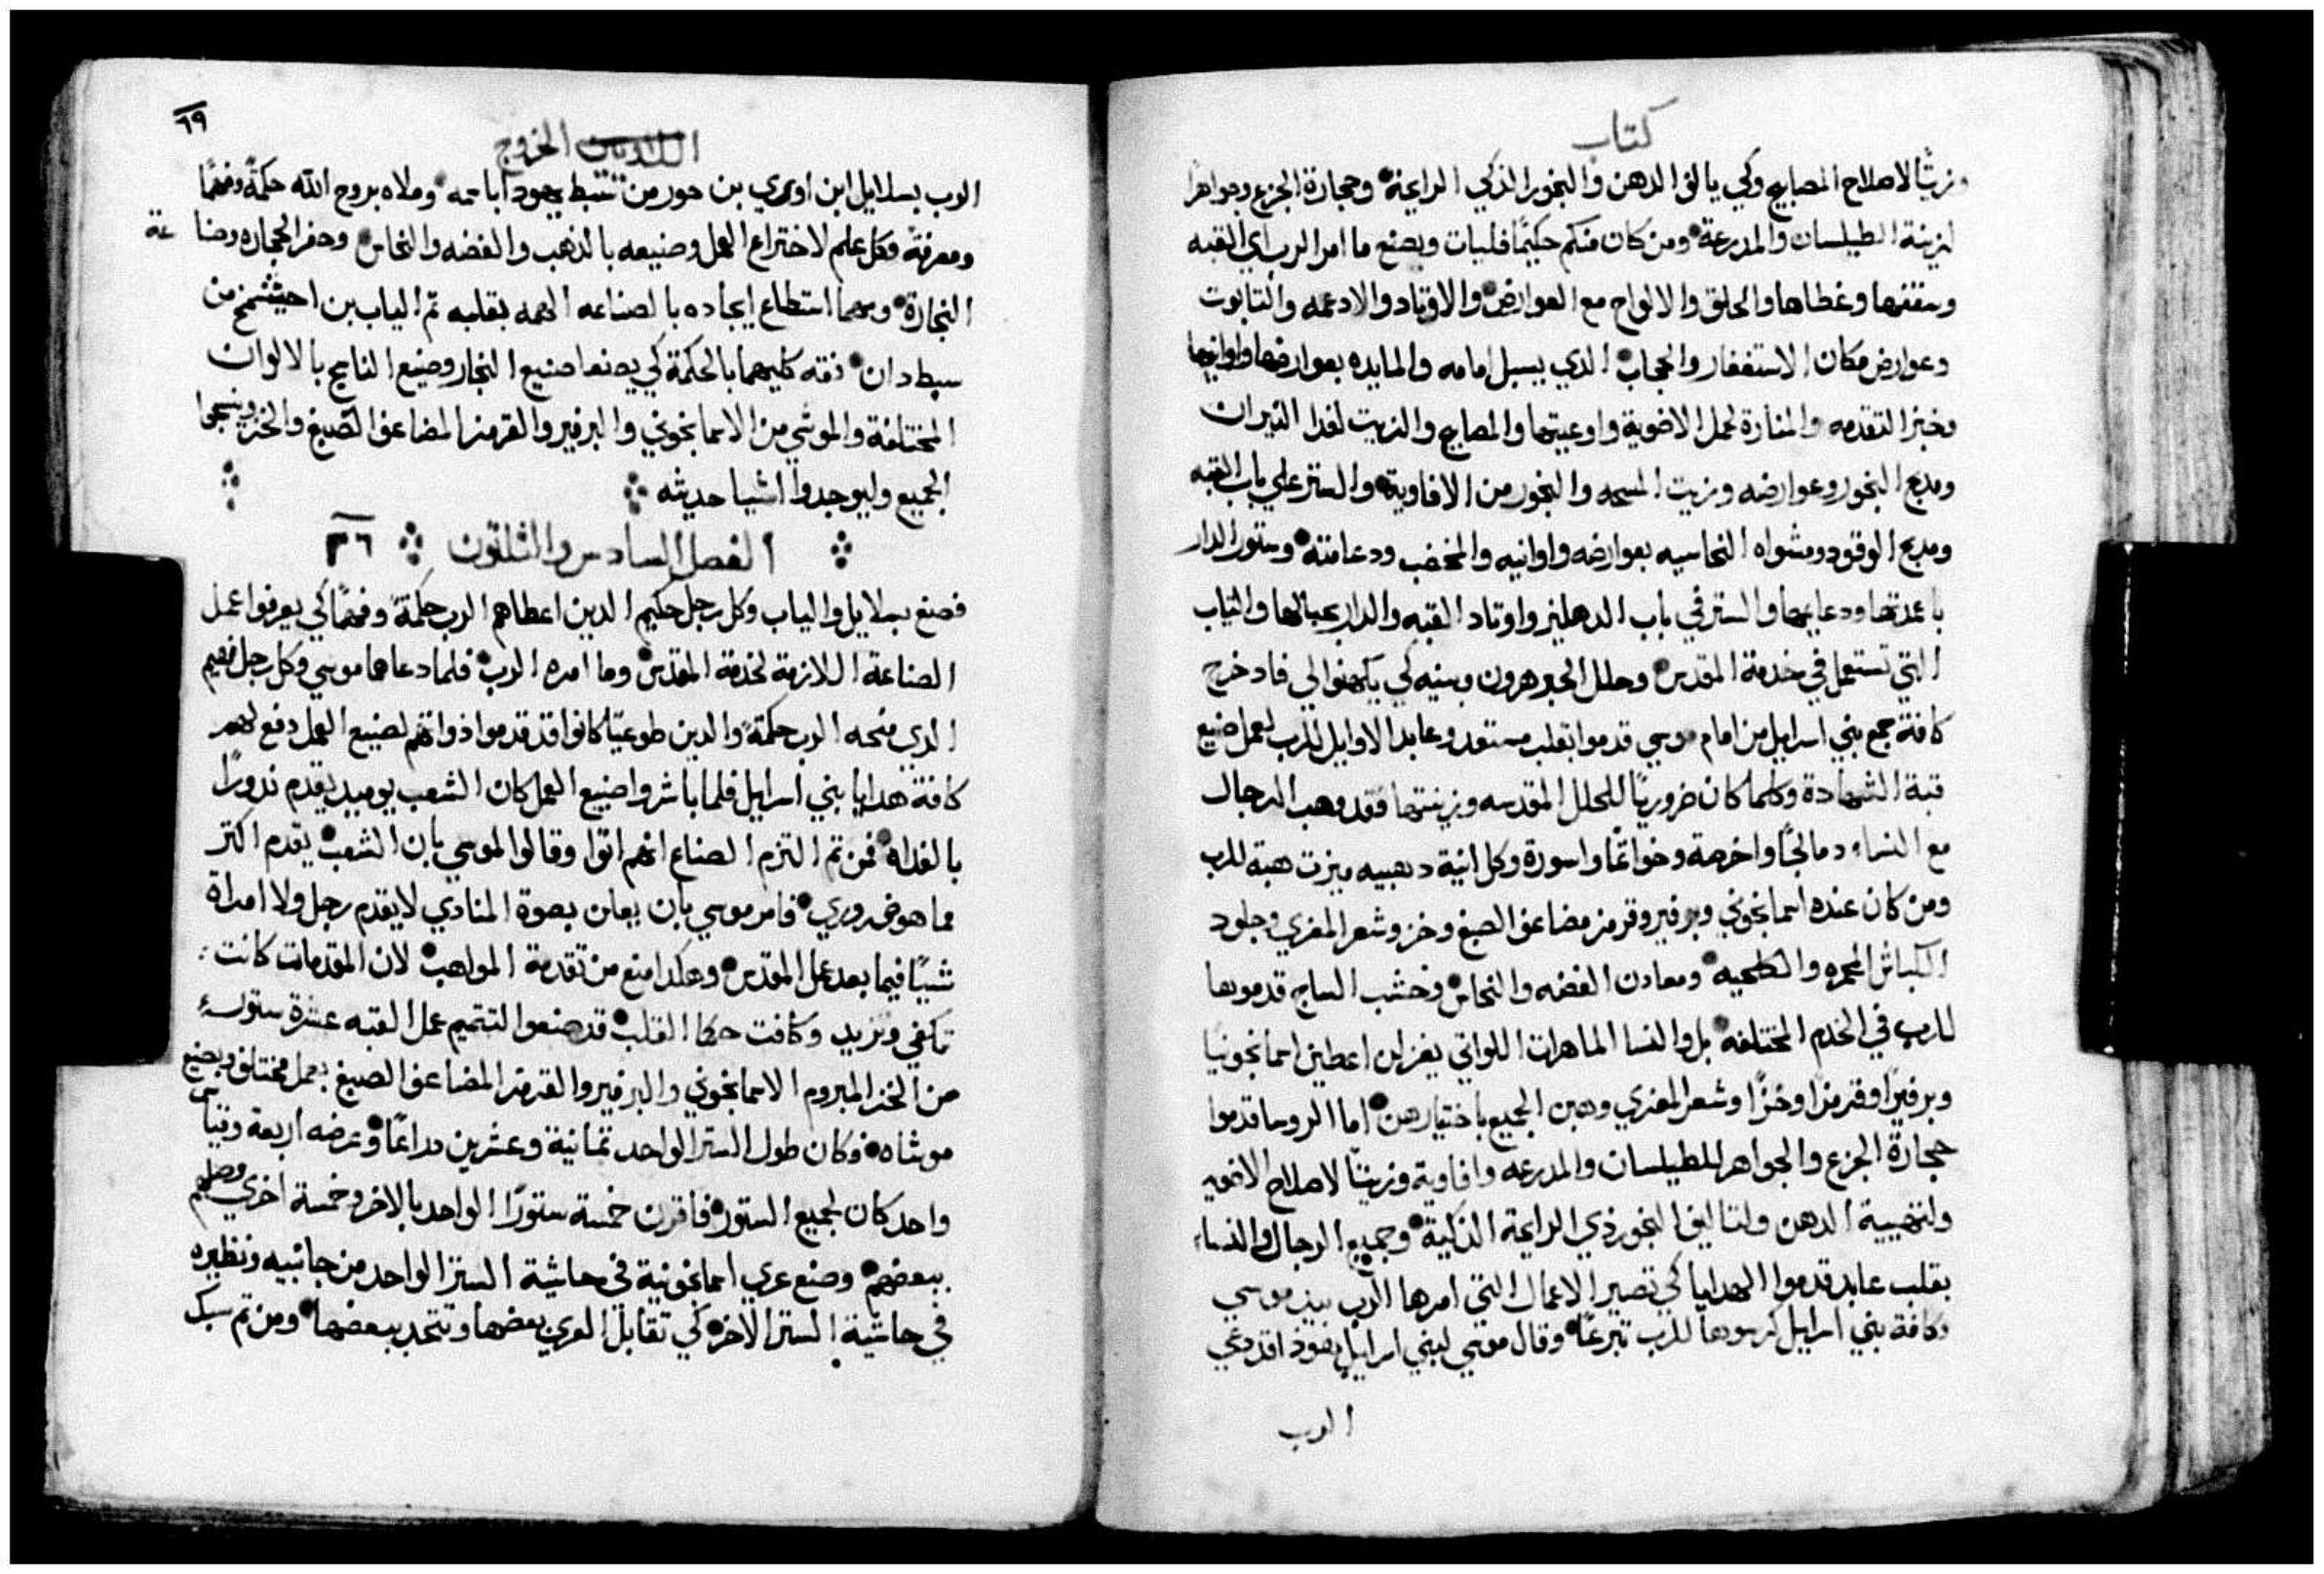 كتاب
وزيتًا لاصلاح المصابيح وكي يالف الدهن والبخور الذكي الرايحة وحجارة الجزع وجواهرًا
لزينة الطيلسان والمدرعة ومن كان منكم حكيمًا فليات ويصنع ما امر الرب اي القبه
وسقفها وغطاها والحلق والالواح مع العوارض والاوتاد والادعمه والتابوت
وعوارض مكان الاستغفار والحجاب الدي يسبل امامه والمايده بعوارضها واوانيها
وخبز التقدمه والمنارة لحمل الاضوية واوعيتها والمصابيح والزيت لغدا النيران
ومدبح البخور وعوارضه وزيت المسحه والبخور من الافاوية والستر علي باب القبه
ومدبح الوقود ومشواه النحاسيه بعوارضه واوانيه والمخضب ودعامته وستور الدار
باعمدتها ودعايمها والستر في باب الدهليز واوتاد القبه والدار بحبالها والتياب
التي تستعمل في خدمة المقدس وحلل الحبر هرون وبنيه كي يكهنوا لي فاد خرج
كافة جمع بني اسرايل من امام موسي قدموا بقلب مستعد وعابد الاوايل للرب لعمل صنيع
قبة الشهادة وكلما كان ضروريًا للحلل المقدسه وزينتها فقد وهب الرجال
مع النساء دمالجًا واخرصة وخواتمًا واسورة وكل انية دهبيه ميزت هبة للرب
ومن كان عنده اسمانجوني وبرفير وقرمز مضاعف الصبغ وخز وشعر المعزي وجلود
الكباش المحمره والكحليه ومعادن الفضه والنحاس وخشب الساج قدموها
للرب في الخدم المختلفه بل والنسا الماهرات اللواتي يغزلن اعطين اسمانجونيًا
وبرفيرًا وقرمزًا وخزًا وشعر المعزي وهبن الجميع باختيارهن اما الروسا قدموا
حجارة الجزع والجواهر للطيلسان والمدرعه وافاوية وزيتًا لاصلاح الاضويه
ولتهيية الدهن ولتاليف البخور ذي الرايحة الذكية وجميع الرجال والنساء
بقلب عابد قدموا الهدايا كي تصير الاعمال التي امرها الرب بيد موسي
وكافة بني اسرايل كرسوها للرب تبرعًا وقال موسي لبني اسرايل هوذا قد دعي
الرب
٦٩
الخروج
الرب بسلايل ابن اوري بن حور من سبط يهودا باسمه وملاه بروح الله حكمةً وفهمًا
ومعرفةً وكل علم لاختراع العمل وصنيعه بالذهب والفضه والنحاس وحفر الحجاره وصناعة
النجارة ومهما استطاع ايجاده بالصناعه الهمه بقلبه تم الياب بن احيشمخ من
سبط دان فقه كليهما بالحكمة كي يصنعا صنيع النجار وصنيع الناسج بالالوان
المختلفة والموشي من الاسمانجوني والبرفير والقرمز المضاعف الصبغ والخز وينسجوا
الجميع وليوجدوا اشيا حديثه
الفصل السادس والثلثون ٣٦
فصنع بسلايل والياب وكل رجل حكيم الدين اعطاهم الرب حكمةً وفهمًا كي يعرفوا عمل
الصناعة اللازمة لخدمة المقدس وما امره الرب فلما دعاهما موسي وكل رجل فهيم
الدي منحه الرب حكمةً والدين طوعيًا كانوا قد قدموا ذواتهم لصنيع العمل دفع لهم
كافة هدايا بني اسرايل فلما باشروا صنيع العمل كان الشعب يوميد يقدم ندورًا
بالغداه فمن تم التزم الصناع انهم اتوا وقالوا لموسي بان الشعب يقدم اكتر
مما هو ضروري فامر موسي بان يعلن بصوة المنادي لا يقدم رجل ولا امراة
شييًا فيما بعد عمل المقدس وهكدا منع من تقدمة المواهب لان المقدمات كانت
تكفي وتزيد وكافت حكما القلب قد صنعوا لتتميم عمل القبه عشرة ستور
من الخز المبروم الاسمانجوني والبرفير والقرمز المضاعف الصبغ بعمل مختلف وبصنيع
موشاه وكان طول الستر الواحد تمانية وعشرين دراعًا وعرضه اربعة وقياس
واحد كان لجميع الستور فاقرن خمسة ستورًا الواحد بالاخر وخمسة اخري وصلهم
ببعضهم وصنع عري اسمانجونية في حاشية الستر الواحد من جانبيه ونظيره
في حاشية الستر الاخر كي تقابل العري بعضها وتتحد ببعضها ومن تم سبك